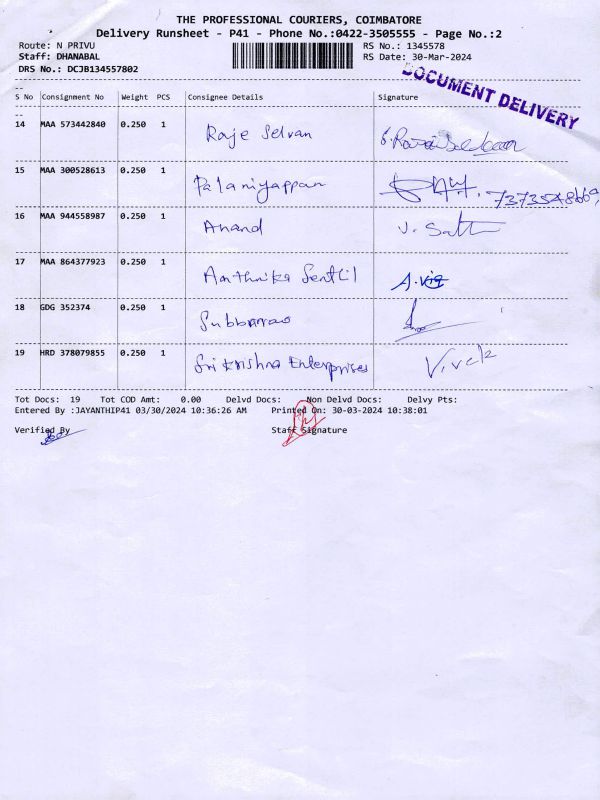 THE PROFESSIONAL COURIERS, COIMBATORE
Delivery Runsheet - P41 - Phone No.:0422-3505555 - Page No.:2
Route: N PRIVU RS No.: 1345578
Staff: DHANABAL RS Date: 30-Mar-2024
DRS No.: DCJB134557802
DOCUMENT DELIVERY
S No Consignment No Weight PCS Consignee Details Signature
14 MAA 573442840 0.250 1 Raje Selvan
15 MAA 300528613 0.250 1 Palaniyappan
16 MAA 944558987 0.250 1 Anand
17 MAA 864377923 0.250 1 Senthil
18 GDG 352374 0.250 1 Subbarao
19 HRD 378079855 0.250 1 Sri Krishna Enterprises Vivek
Tot Docs: 19 Tot COD Amt: 0.00 Delvd Docs: Non Delvd Docs: Delvy Pts:
Entered By :JAYANTHIP41 03/30/2024 10:36:26 AM Printed On: 30-03-2024 10:38:01
Verified By Staff Signature